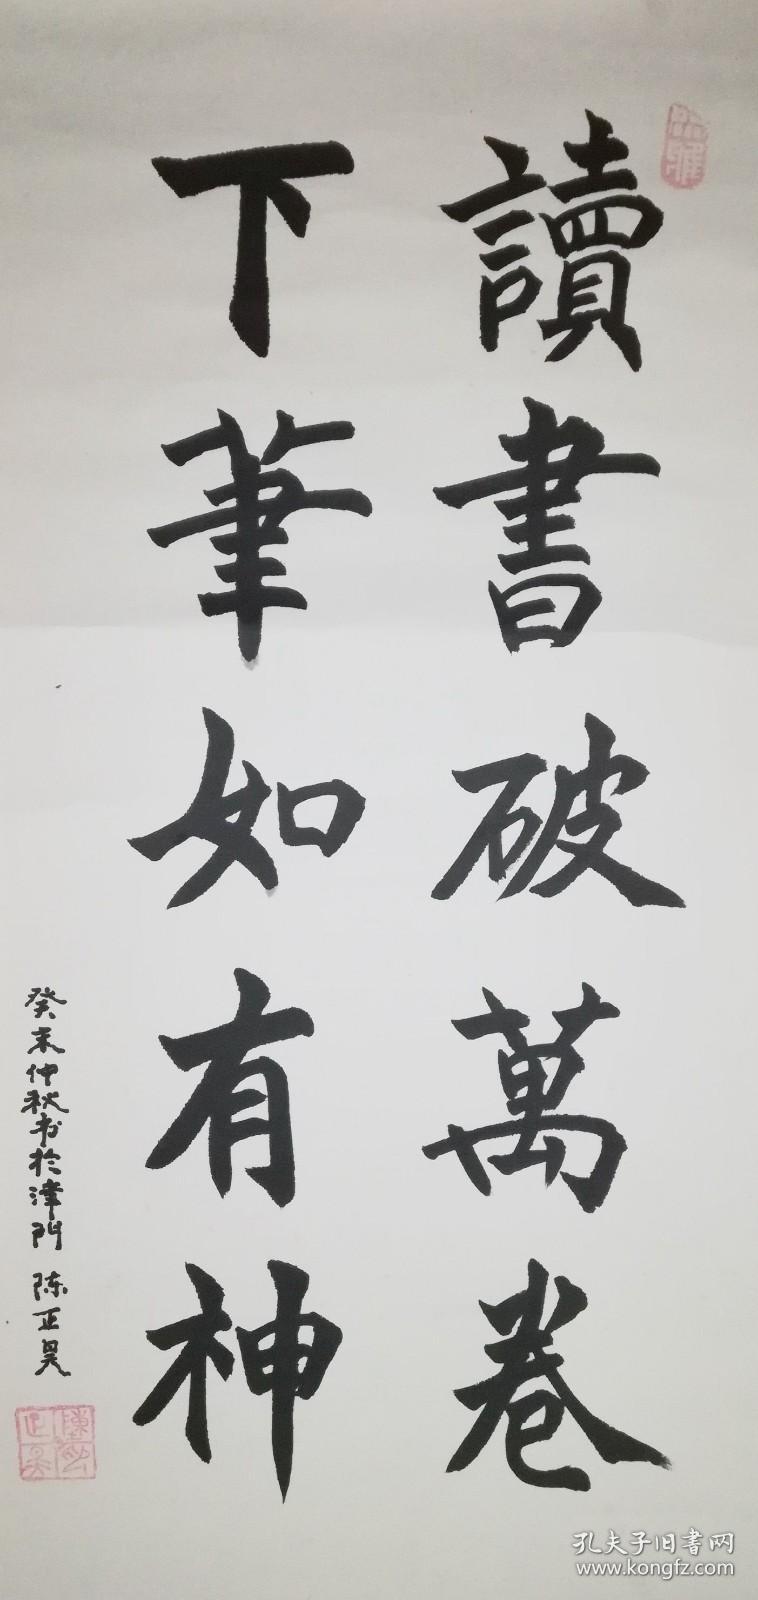 讀書破萬卷
下筆如有神
癸未仲秋书於津门 陈正昊
孔夫子旧書网
www.kongfz.com